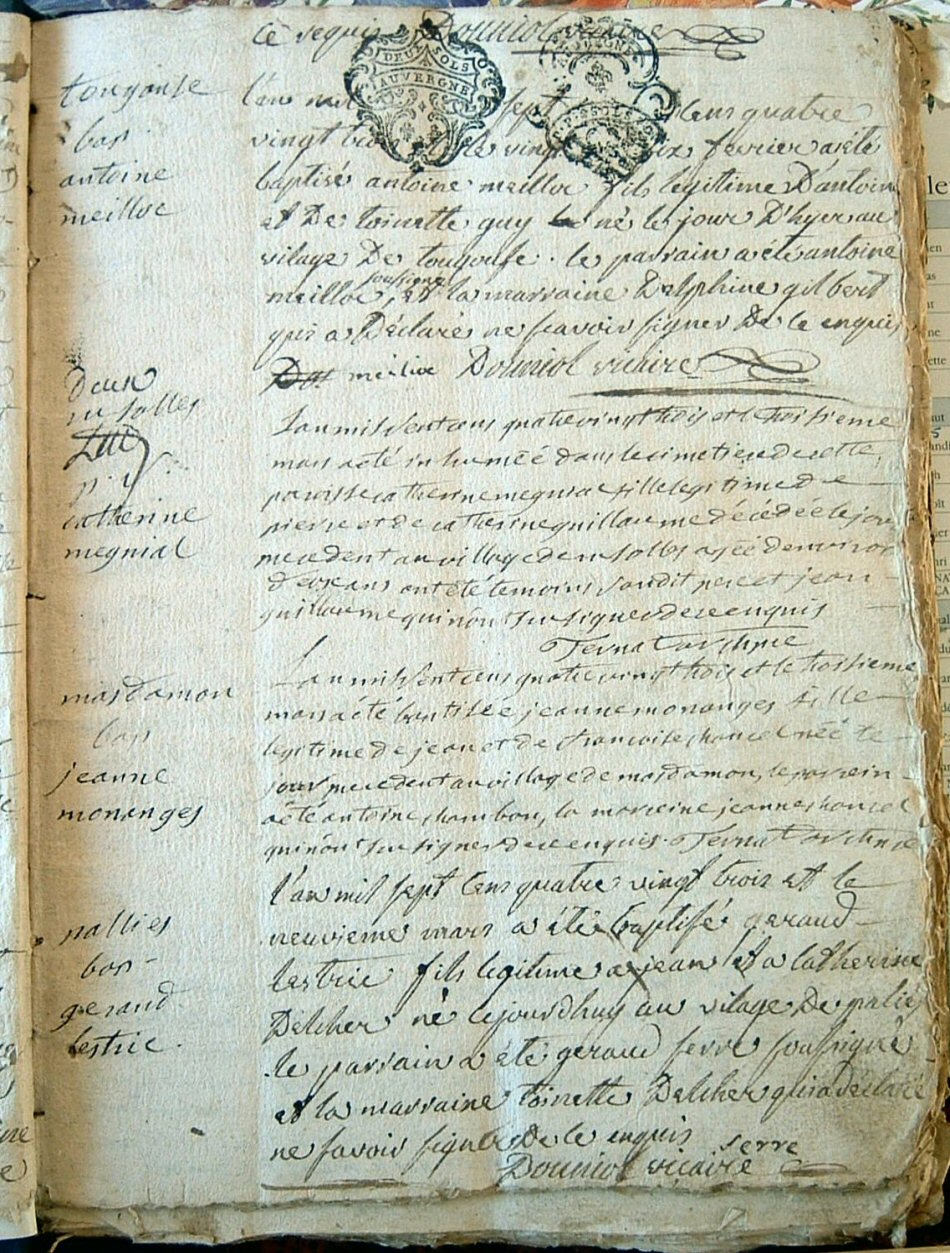 ce requis Douniol vicaire
DEUX SOLS
AUVERGNE
tougouse
bap
antoine
meilloc
l'an mil sept cens quatre
vingt trois et le vingt février a été
baptisé antoine meilloc fils legitime D'antoine
et De toinette guy né le jour D'hyer au
vilage De tougouse . le parrain a été antoine
meilloc soussigné, et la marraine Delphine gilbert
qui a Déclaré ne scavoir signer De ce enquis
meiloc Douniol vicaire
Deux
en solles
catherine
megnial
L'an mil sept cens quatre vingt trois et le troisieme
mars a été inhumée dans le cimetiere de cette
paroisse catherine megnial fille legitime de
pierre et de catherine guillaume décédée le jour
precedent au village de en solles agée d'environ
deux ans ont été temoins sondit pere et jean
guillaume qui n'ont sçu signer de ce enquis
Ternat
masdamon
bap
jeanne
monanges
L'an mil sept cens quatre vingt trois et le troisieme
mars a été baptisée jeanne monanges fille
legitime de jean et de francoise chancel née le
jour precedent au village de masdamon, le parrein
a été antoine chambon, la marreine jeanne chancel
qui n'ont sçu signer de ce enquis. Ternat
pallies
bap
geraud
lestrie .
l'an mil sept cens quatre vingt trois et le
neuvieme mars a été baptisé geraud
lestrie fils legitime a jean et a catherine
Delcher né cejourdhuy au vilage De palies
le parrain a été geraud serre soussigné
et la marraine toinette Delcher qui a déclaré
ne savoir signer De ce enquis
serre
Douniol vicaire